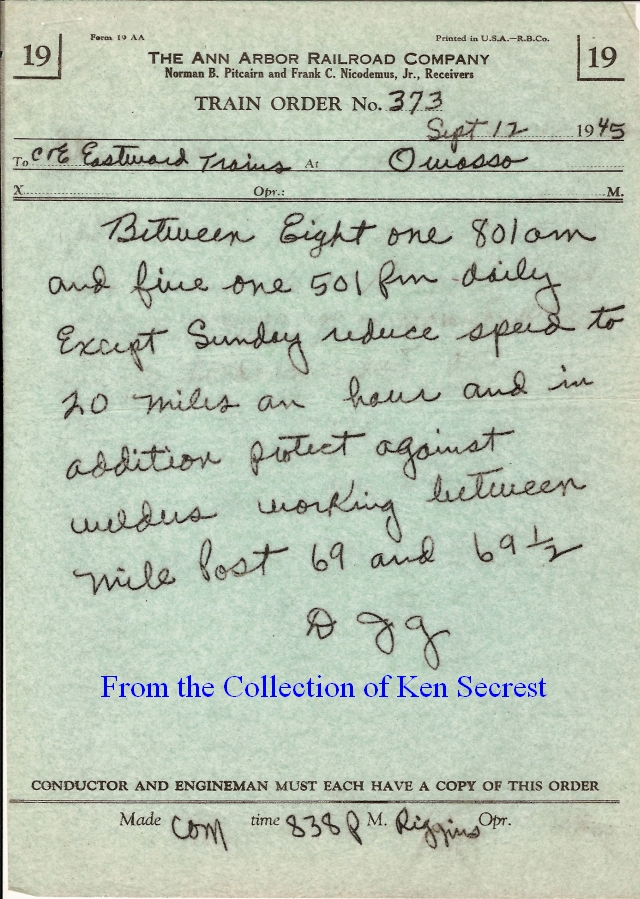 Form 19 AA Printed in U.S.A.—R.B.Co.
19 19
THE ANN ARBOR RAILROAD COMPANY
Norman B. Pitcairn and Frank C. Nicodemus, Jr., Receivers
TRAIN ORDER No. 373
Sept 12 1945
To C&E Eastward Trains At Owosso
X Opr.: M.
Between Eight one 801 am
and five one 501 pm daily
Except Sunday reduce speed to
20 miles an hour and in
addition protect against
welders working between
Mile Post 69 and 69 1/2
D J G
From the Collection of Ken Secrest
CONDUCTOR AND ENGINEMAN MUST EACH HAVE A COPY OF THIS ORDER
Made Com time 838 P M. Riggins Opr.